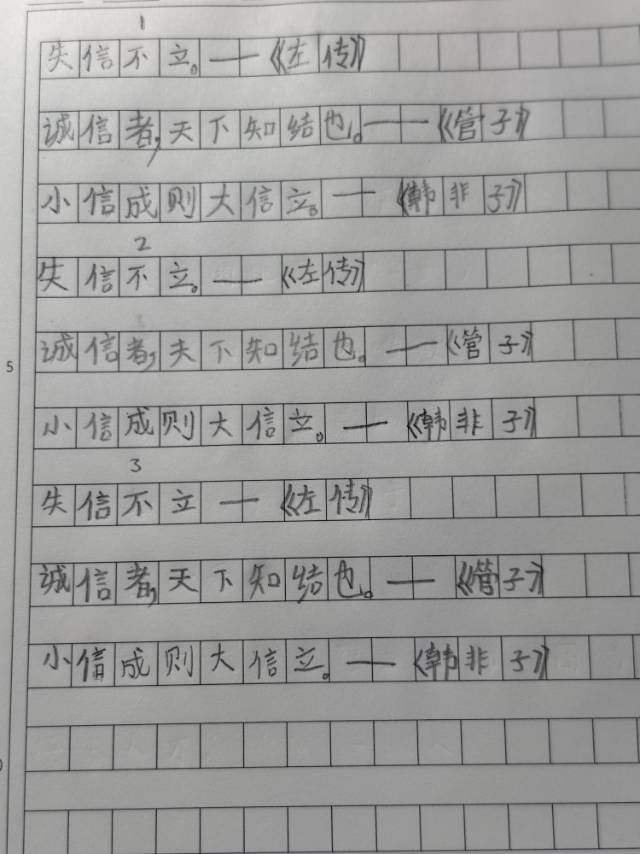 1
失信不立。——《左传》
诚信者,天下知结也。——《管子》
小信成则大信立。——《韩非子》
2
失信不立。——《左传》
诚信者,夫下知结也。——《管子》
5
小信成则大信立。——《韩非子》
3
失信不立——《左传》
诚信者,天下知结也。——《管子》
小信成则大信立。——《韩非子》